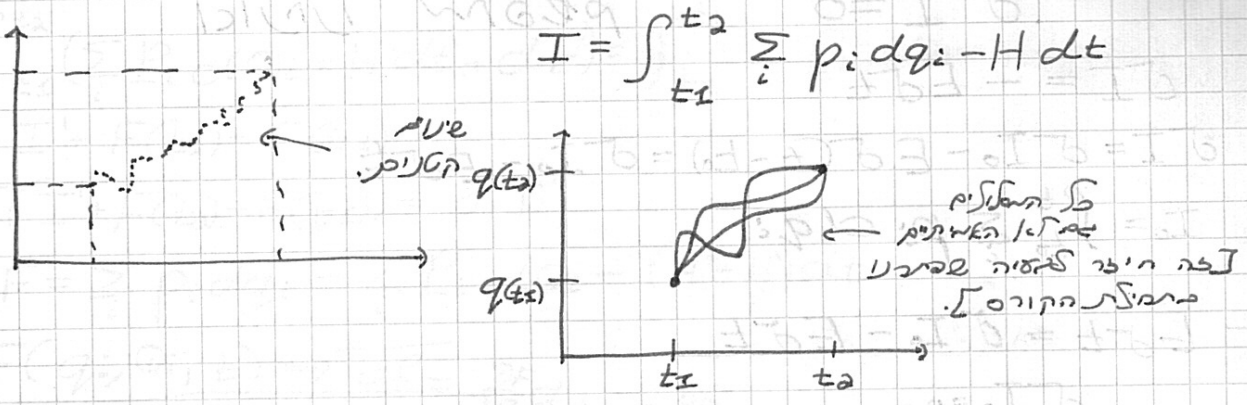 I = ∫_{t1}^{t2} Σ_i p_i dq_i - H dt
שינוים
הקטנים.
q(t2)
q(t1)
t1
t2
כל המסלולים
גם לא האמיתיים
[זה חיזר לבעיה שפתרנו
בתחילת הקורס].